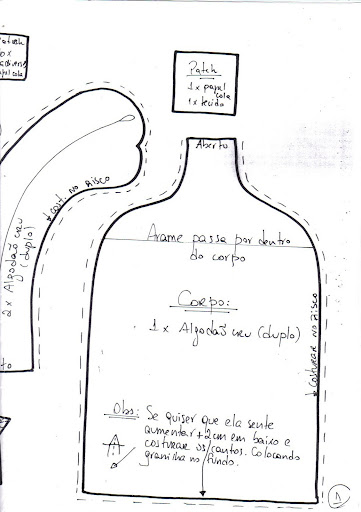 Patch
1x papel
cola
1x tecido
Aberto
cost. no risco
2x Algodão cru
(duplo)
Arame passa por dentro
do corpo
Corpo:
1x Algodão cru (duplo)
costurar no risco
Obs: Se quiser que ela sente
aumentar +2cm em baixo e
costurar os cantos. Colocando
granilha no fundo.
1